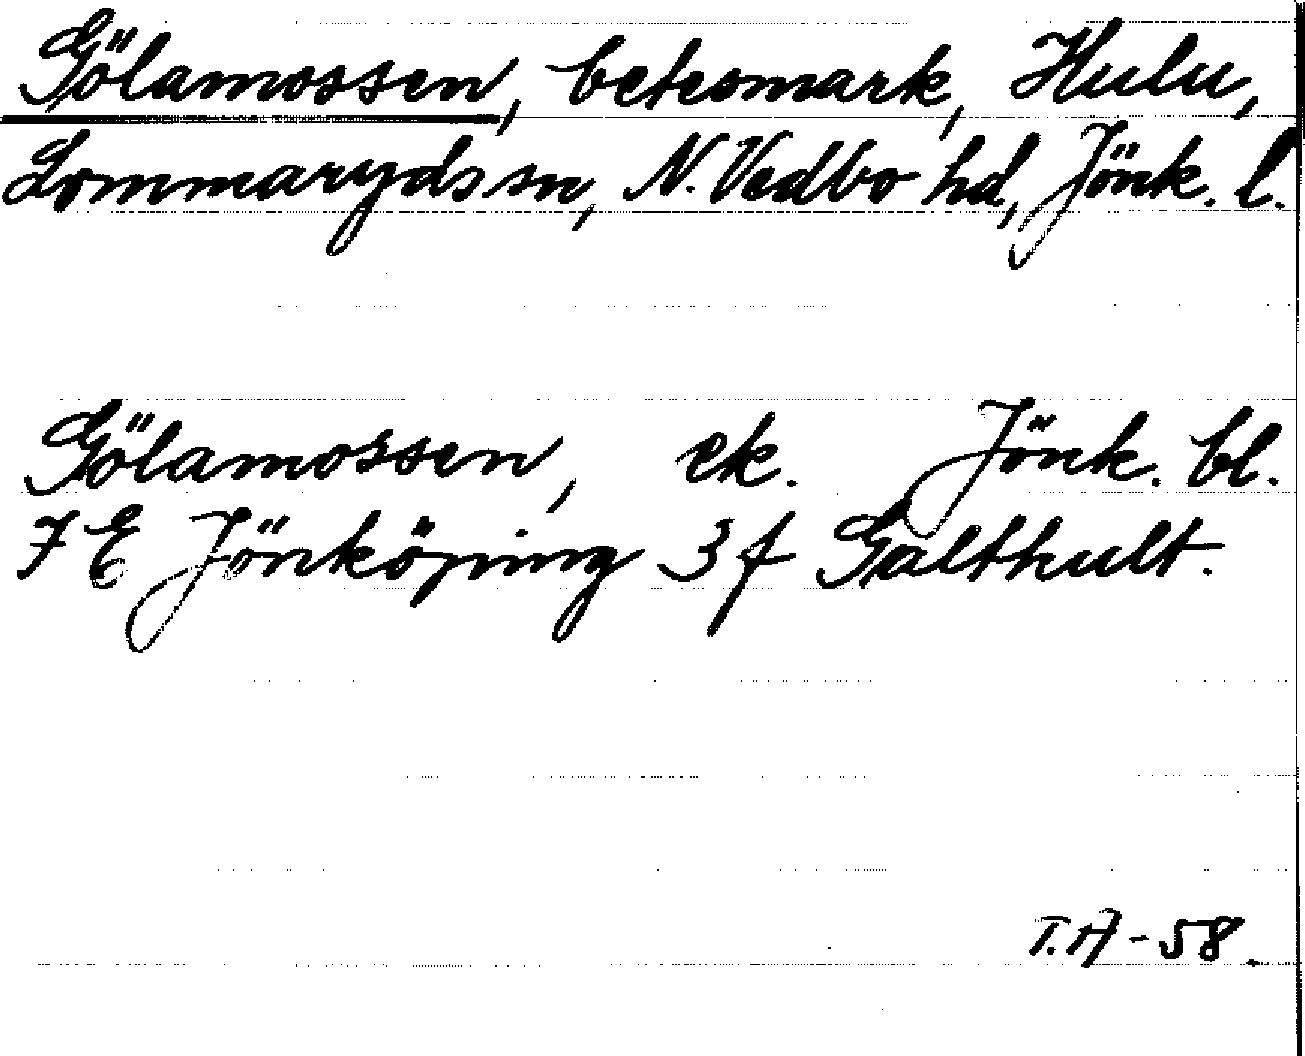 Gölamossen, betesmark, Hulu,
Lommaryds sn, N. Vedbo hd, Jönk. l.
Gölamossen, ek. Jönk. bl.
7 E Jönköping 3 f Galthult.
T.A - 58.